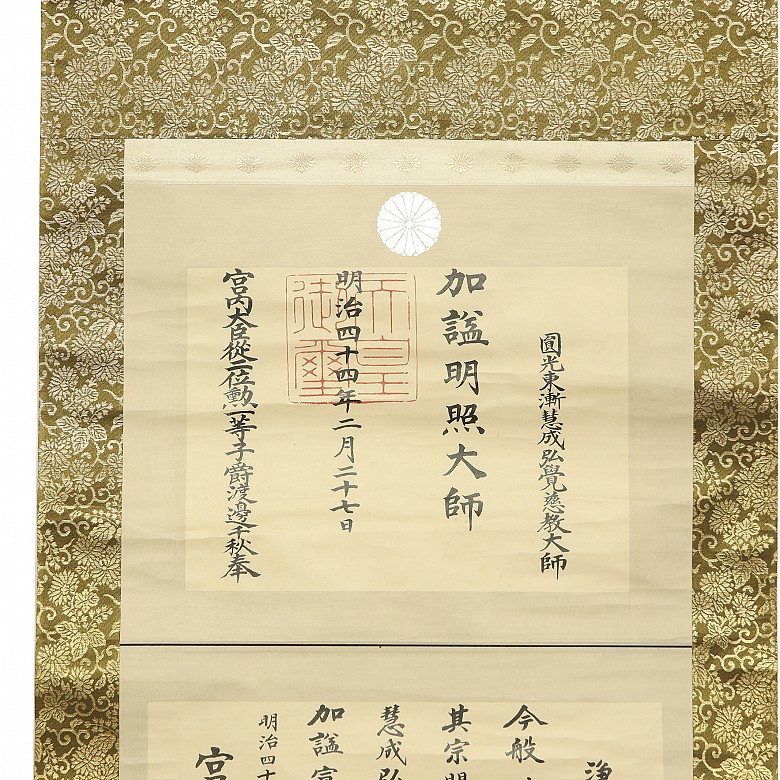 圓光東漸慧成弘覺慈教大師
加諡明照大師
明治四十四年二月二十七日
天皇御璽
宮内大臣從二位勲一等子爵渡邊千秋奉
浄
今般
其宗明
慧成弘
加諡宣
明治四十
宮